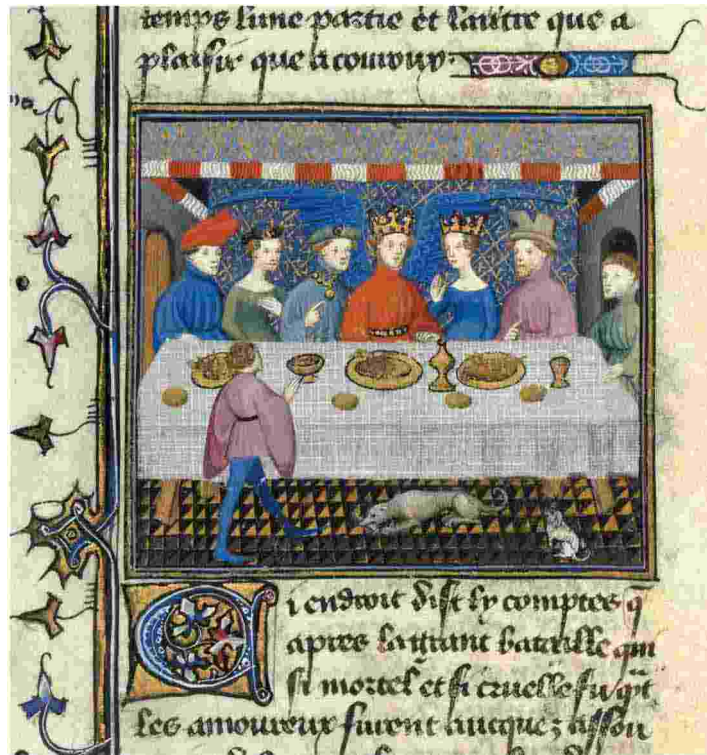 temps lune partie et lautre que a
plaisir que a courour.
Ci endroit dist ly comptes q
apres la grant bataille qui
si mortel et si cruelle fu qt
les amoureux furent aucques assou